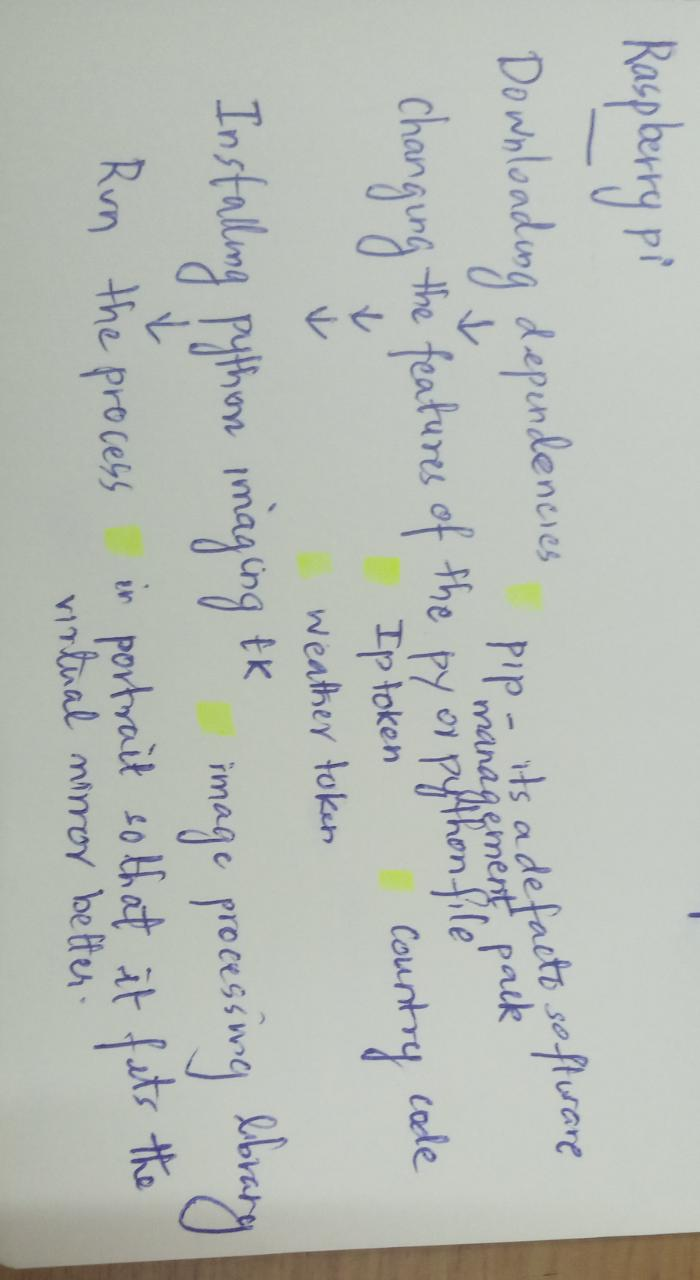 Raspberry pi
Downloading dependencies pip - its a defacto software
management pack
↓
changing the features of the py or python file
↓ Ip token country code
↓ weather token
Installing python imaging tk image processing library
↓
Run the process in portrait so that it fits the
virtual mirror better.